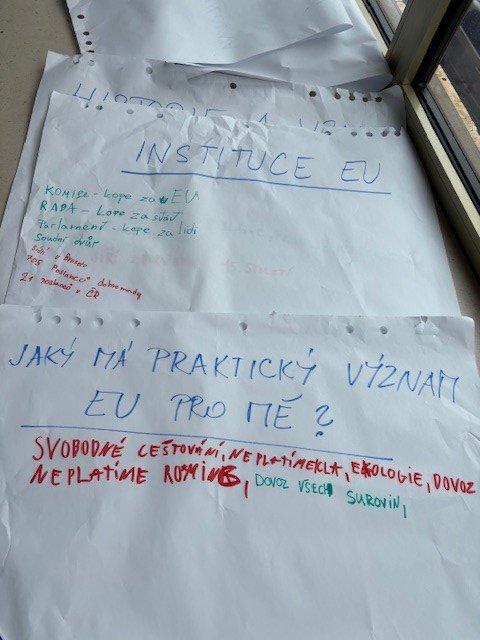 HISTORIE A
INSTITUCE EU
KOMISE - kope za EU
RADA - kope za stát
Parlament - kope za lidi
Soudní dvůr
Sídlí v Bruselu
705 Poslanců dohromady
21 poslanců v ČR
JAKÝ MÁ PRAKTICKÝ VÝZNAM
EU PRO MĚ?
SVOBODNÉ CEŠTOVÁNÍ, NEPLATÍME CLA, EKOLOGIE, DOVOZ
NEPLATÍME ROMING, DOVOZ VŠECH SUROVIN,